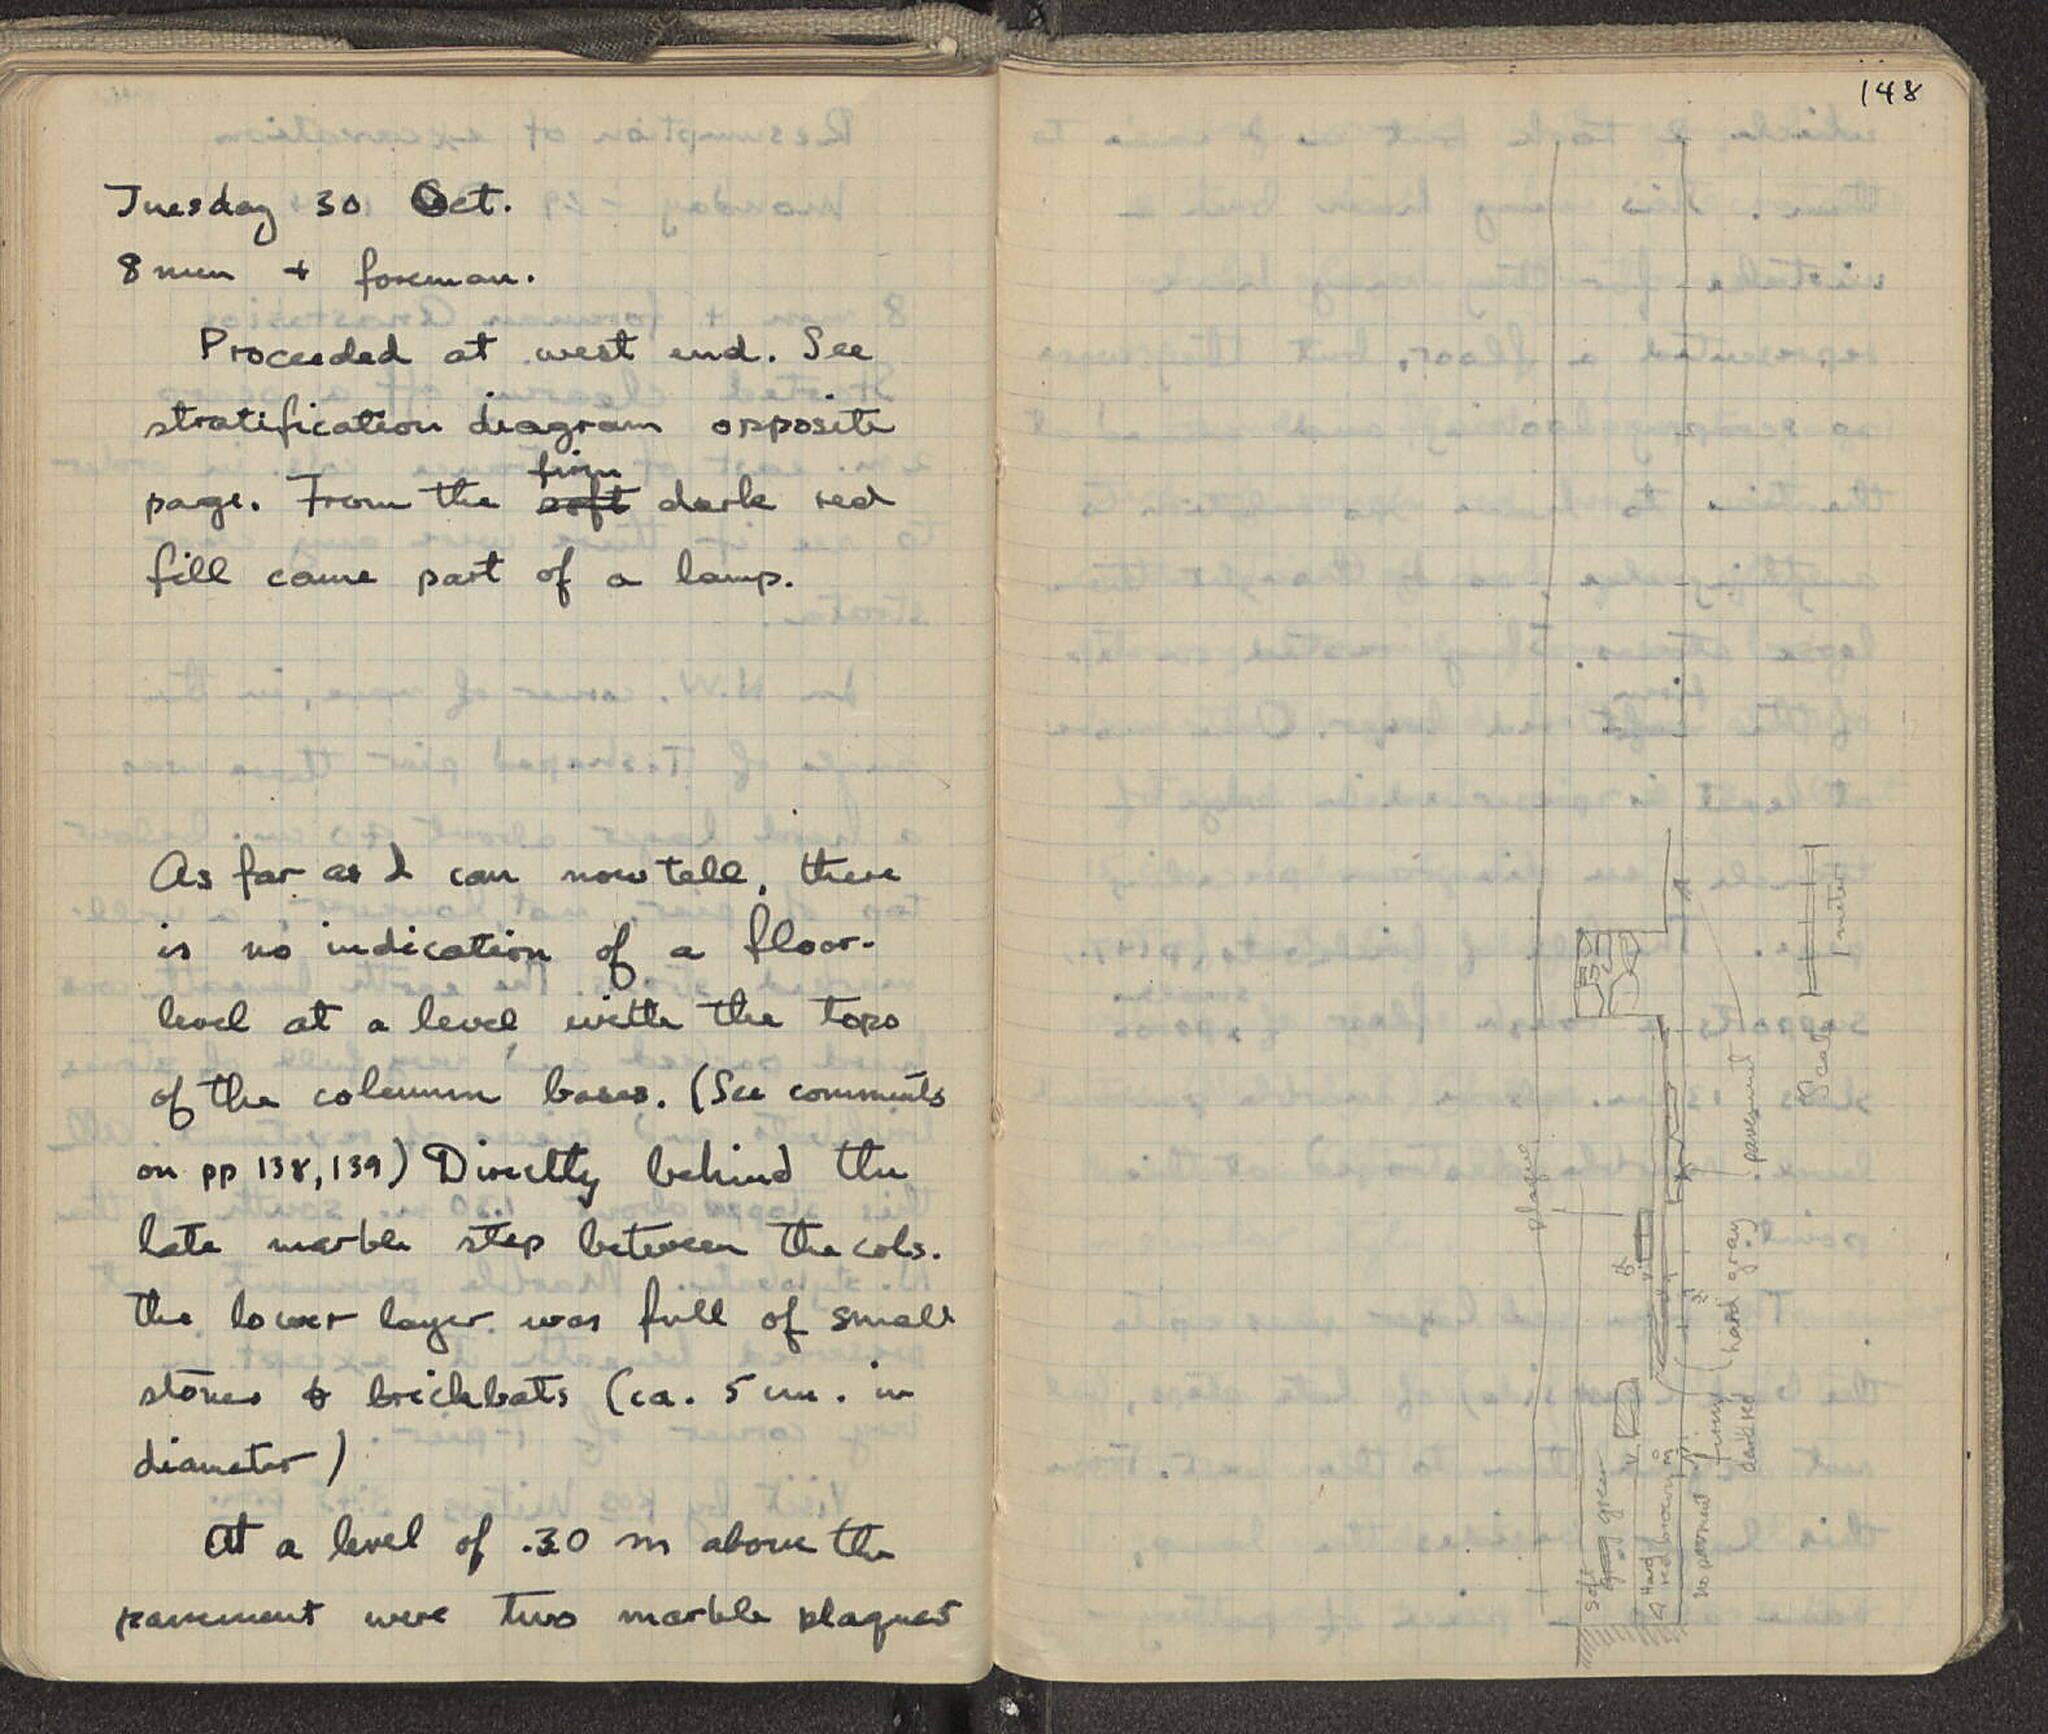 Tuesday 30 Oct.
8 men + foreman.
Proceeded at west end. See
stratification diagram opposite
firm
page. From the soft dark red
fill came part of a lamp.
As far as I can now tell, there
is no indication of a floor-
level at a level with the tops
of the column bases. (See comments
on pp 138, 139) Directly behind the
late marble step between the cols.
the lower layer was full of small
stones & brickbats (ca. 5 cm. in
diameter)
At a level of .30 m above the
pavement were two marble plaques
148
plaque
Scale
1 meter
pavement
hard gray
firm
dark red
soft
green
Hard
red brown
no pavement